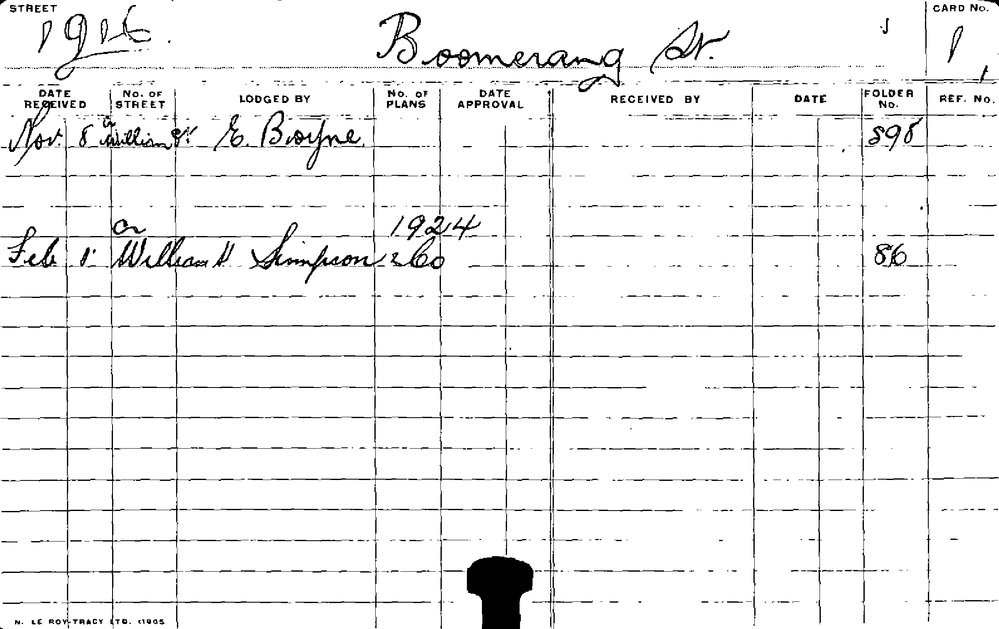 STREET 1916. Boomerang St. CARD No. 1
DATE RECEIVED No. OF STREET LODGED BY No. OF PLANS DATE APPROVAL RECEIVED BY DATE FOLDER No. REF. No.
Nov. 8 Cr William St E. Boyne. 898
1924
Cr
Feb 1 William St Simpson & Co 86
N. LE ROY-TRACY LTD. 11905